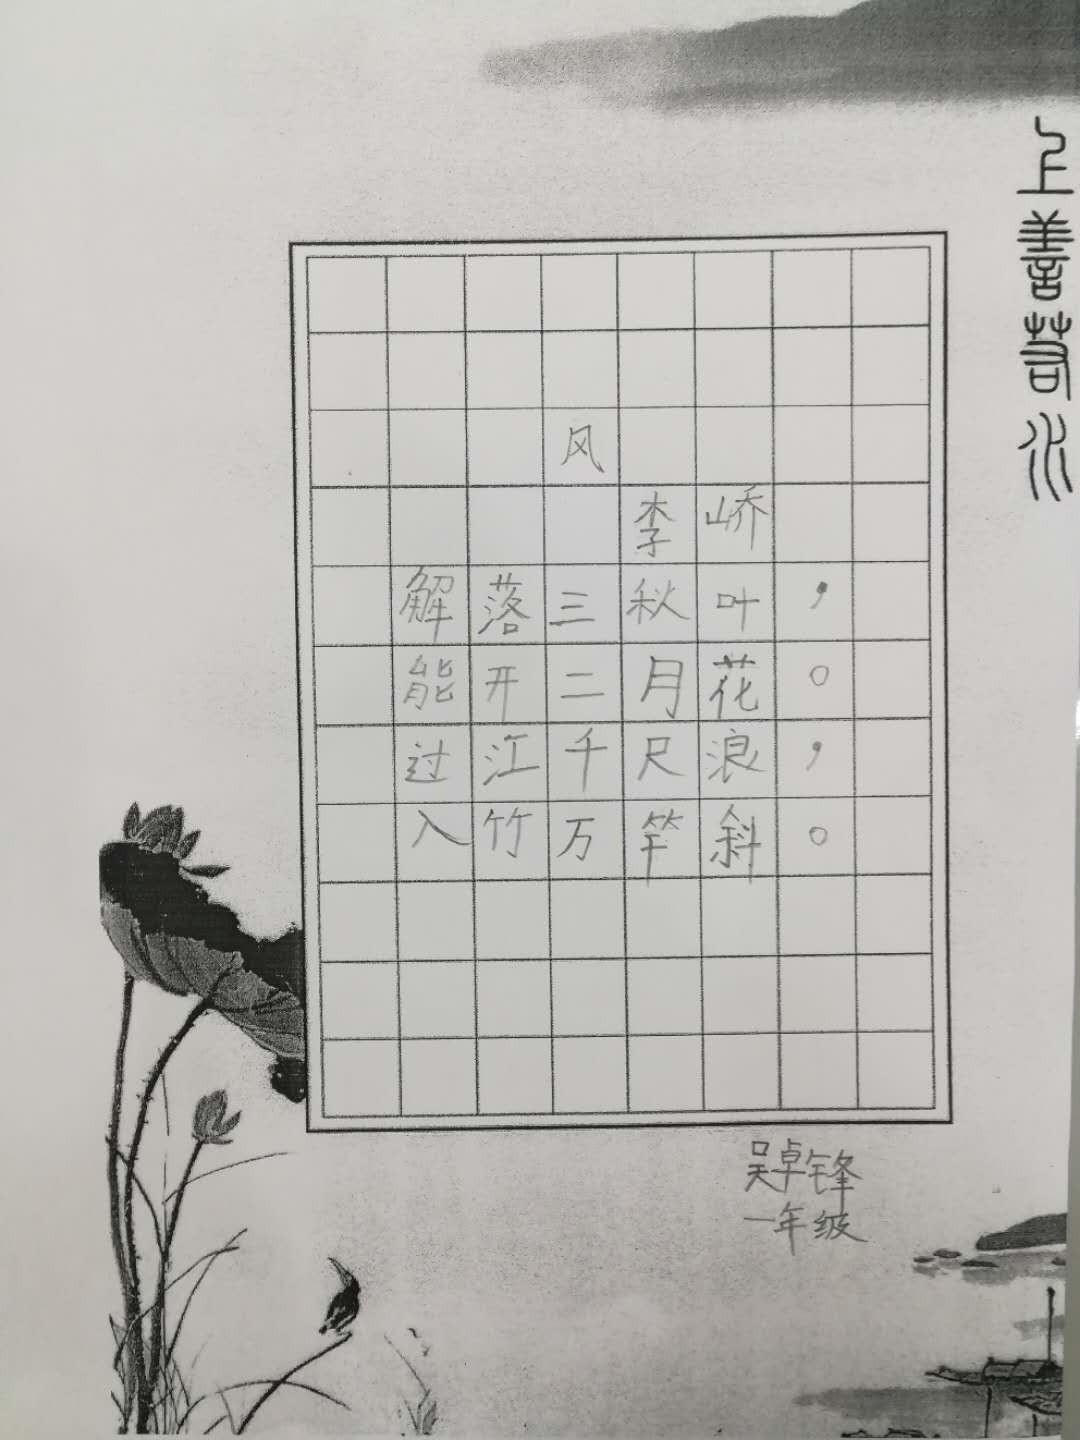 上善若水
风
李峤
解落三秋叶，
能开二月花。
过江千尺浪，
入竹万竿斜。
吴卓锋
一年级